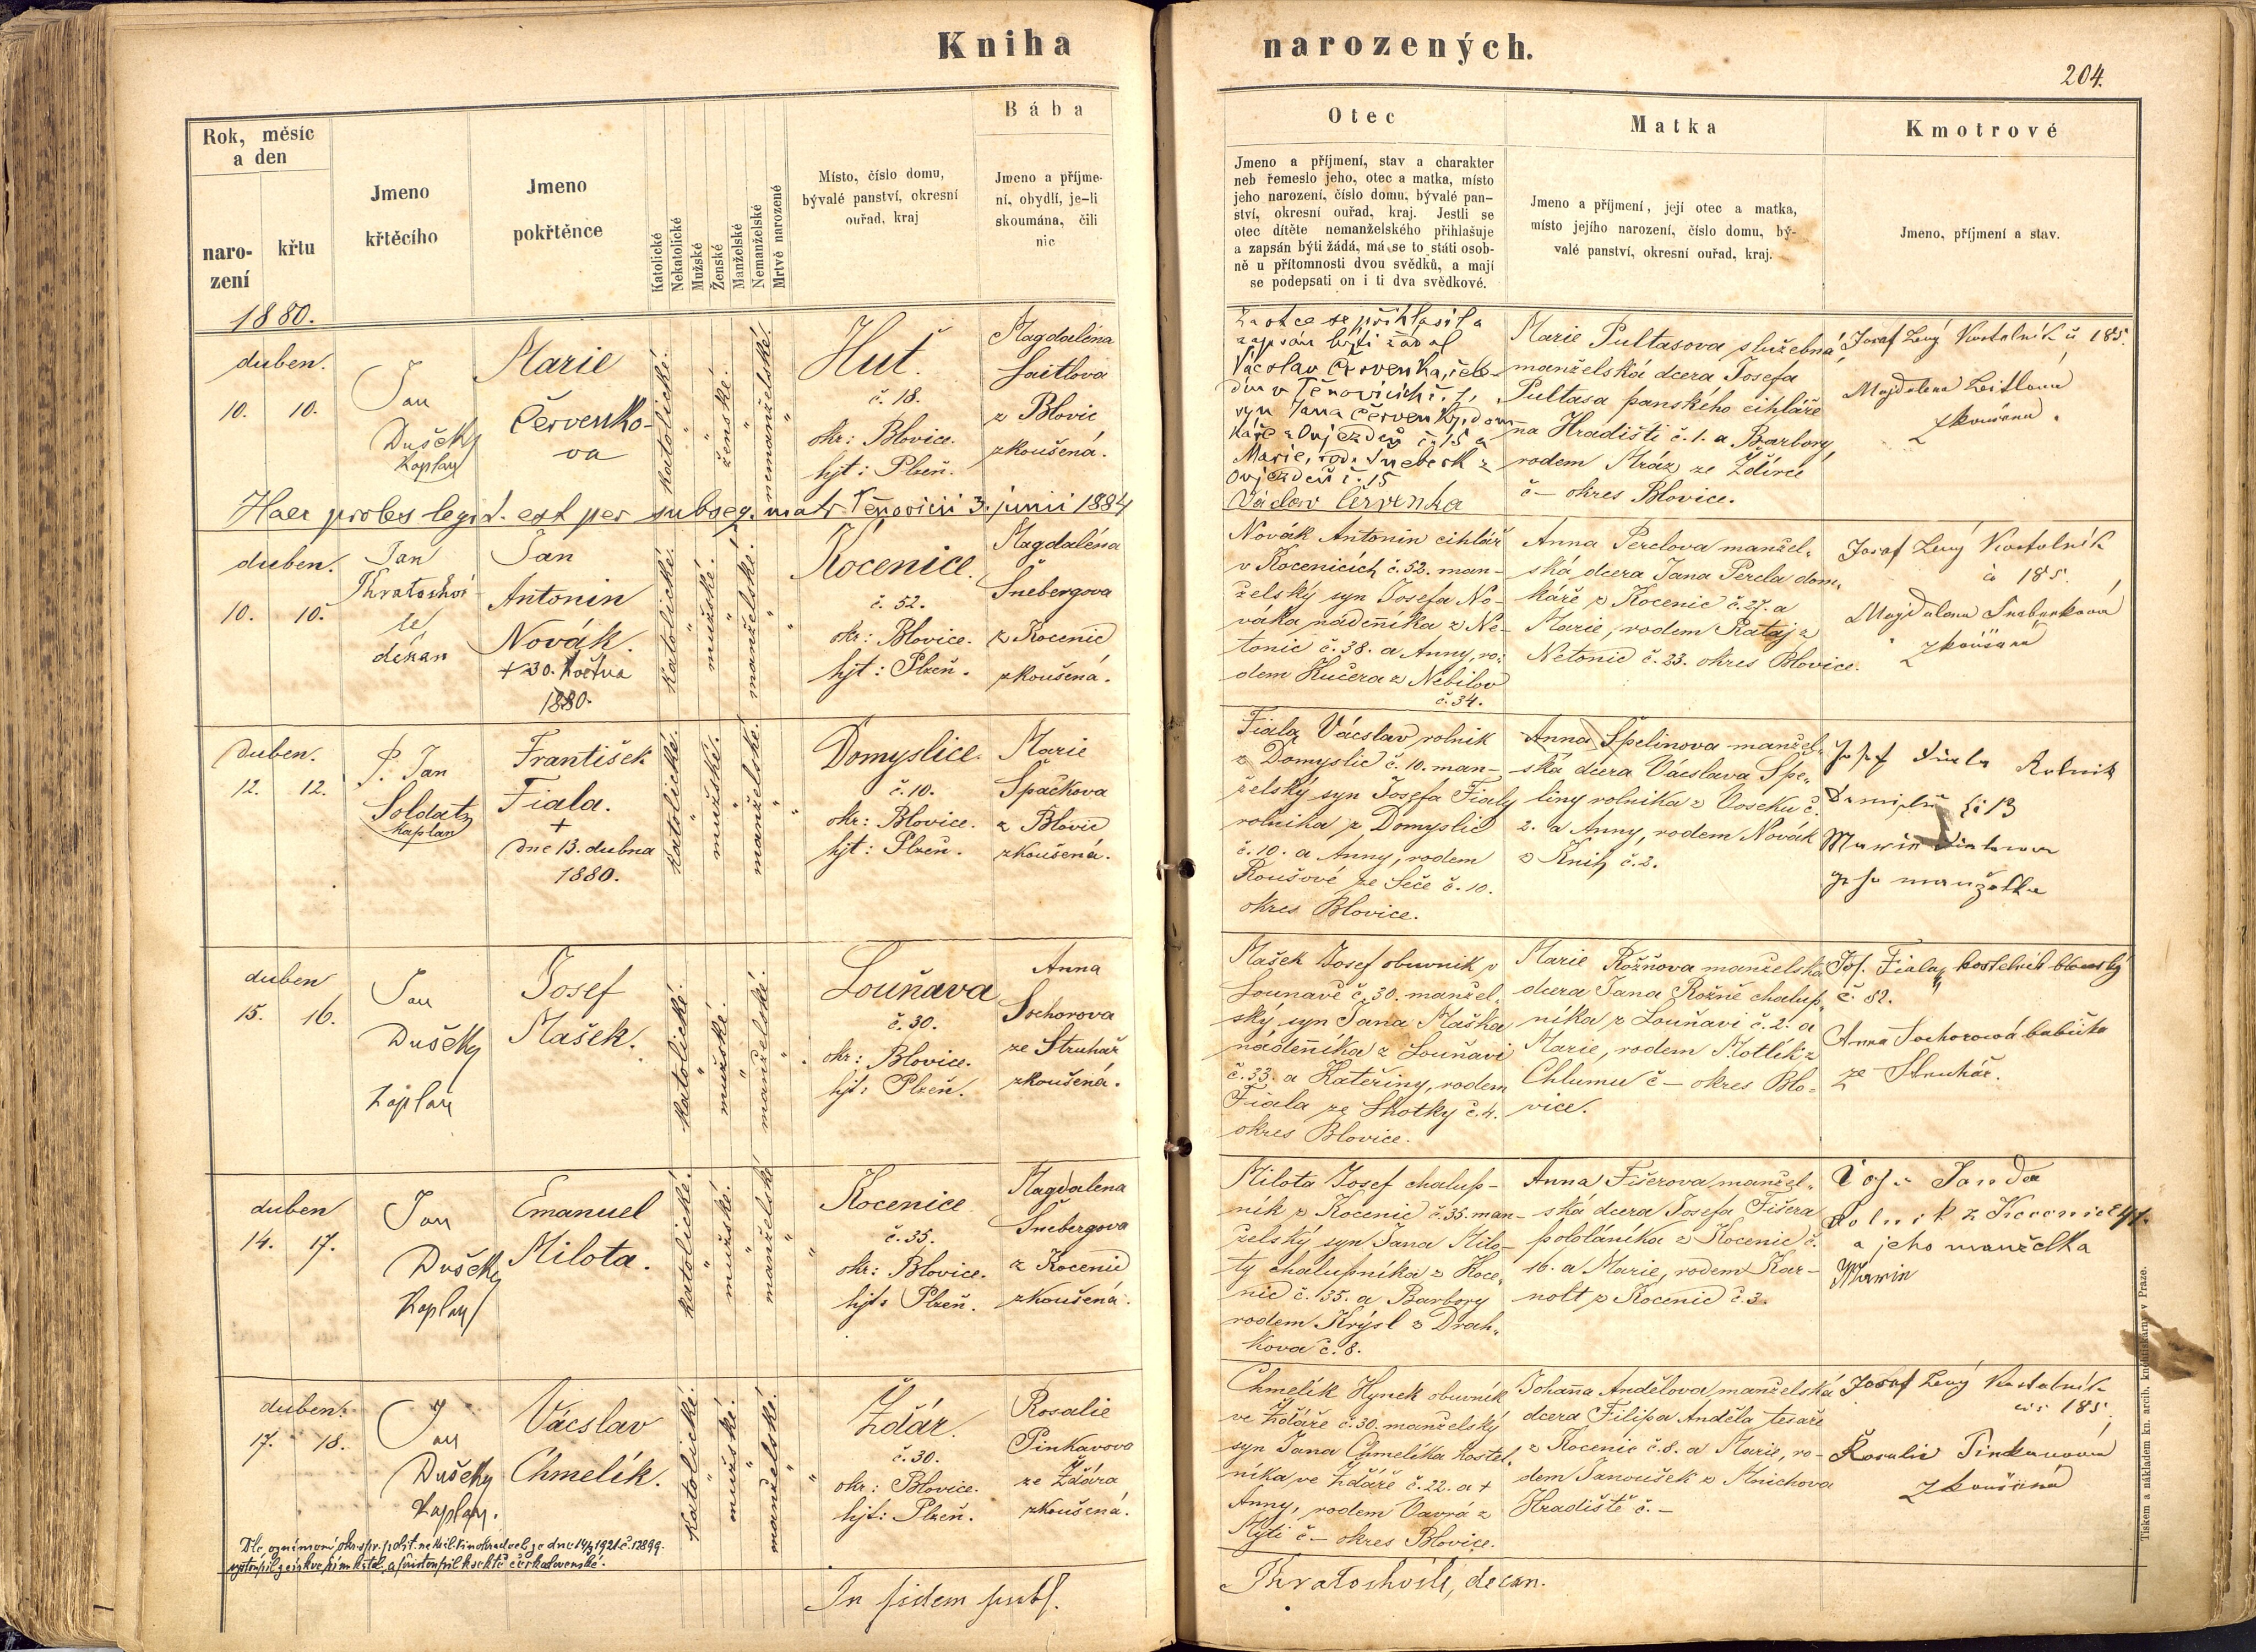 Kniha
narozených.
204.
Rok, měsíc
a den
naro-
zení
křtu
Jmeno
křtěcího
Jmeno
pokřtěnce
Katolické
Nekatolické
Mužské
Ženské
Manželské
Nemanželské
Mrtvě narozené
Místo, číslo domu,
bývalé panství, okresní
ouřad, kraj
Bába
Jmeno a příjme-
ní, obydlí, je-li
skoumána, čili
nic
Otec
Jmeno a příjmení, stav a charakter
neb řemeslo jeho, otec a matka, místo
jeho narození, číslo domu, bývalé pan-
ství, okresní ouřad, kraj. Jestli se
otec dítěte nemanželského přihlašuje
a zapsán býti žádá, má se to státi osob-
ně u přítomnosti dvou svědků, a mají
se podepsati on i ti dva svědkové.
Matka
Jmeno a příjmení, její otec a matka,
místo jejího narození, číslo domu, bý-
valé panství, okresní ouřad, kraj.
Kmotrové
Jmeno, příjmení a stav.
1880.
duben.
10. 10.
Jan
Dušek
Kaplan
Marie
Červenko-
va
katolické.
ženské.
nemanželské.
Huť.
č. 18.
okr: Blovice.
hjt: Plzeň.
Magdaléna
Laitlova
z Blovic
zkoušená.
Za otce se přihlásil a
zapsán býti žádal
Vácslav Červenka, čele-
dín v Těnovicích č. 7,
syn Jana Červenky, dom-
káře z Oujezdce č. 15 a
Marie, rod.
č. 15
Václav Červenka
Marie Pultasova služebná,
manželská dcera Josefa
Pultasa panského cihláře
na Hradišti č. 1. a Barbory,
rodem Mráz ze Ždírce
č – okres Blovice.
Josef Levý Kostelník č 185.
Magdalena Leitlova
zkoušená.
Haec proles legit. est per subseq. matr. Těnovicii 3. junii 1884
duben.
10. 10.
Jan
Kratochví
le
děkan
Jan
Antonín
Novák.
+ 30. května
1880.
katolické.
mužské.
manželské.
Kocenice.
č. 52.
okr: Blovice.
hjt: Plzeň.
Magdaléna
Šnebergova
z Kocenic
zkoušená.
Novák Antonín cihlář
v Kocenicích č. 52. man-
želský syn Josefa No-
váka nádeníka z Ne-
tonic č. 38. a Anny, ro-
dem Kučera z Nebilov
č. 34.
Anna Perclova manžel-
ská dcera Jana Percla dom-
káře z Kocenic č. 27. a
Marie, rodem Rataj z
Netonic č. 23. okres Blovice.
Josef Levý Kostelník
č 185.
zkoušená
Duben.
12. 12.
P. Jan
Soldát
kaplan
František
Fiala.
+
dne 13. dubna
1880.
katolické.
mužské.
manželské.
Domyslice.
č. 10.
okr: Blovice.
hjt: Plzeň.
Marie
Špačkova
z Blovic
zkoušená.
Fiala Vácslav rolník
z Domyslic č. 10. man-
želský syn Josefa Fialy
rolníka z Domyslic
č. 10. a Anny, rodem
Roušové ze Seče č. 10.
okres Blovice.
Anna Špelinova manžel-
ská dcera Vácslava Špe-
liny rolníka z Voseku č.
2. a Anny, rodem Novák
z Knih č. 2.
Josef Fiala Rolnik
Marie Fialowa
manželka
duben
15. 16.
Jan
Dušek
kaplan
Josef
Mašek.
katolické.
mužské.
manželské.
Louňava
č. 30.
okr: Blovice.
hjt: Plzeň.
Anna
Sochorova
ze Struhař
zkoušená.
Mašek Josef obuvník v
Louňavě č. 30. manžel-
ský syn Jana Maška
nádeníka z Louňavi
č. 33. a Kateřiny, rodem
Fiala ze Skotky č. 4.
okres Blovice.
Marie Rožňova manželská
dcera Jana Rožně chalup-
níka z Louňavi č. 2. a
Marie, rodem Motlík z
Chlumu č – okres Blo-
vice.
Jos. Fiala, kostelník blovský
č. 82.
Anna Sochorová babička
ze Struhař.
duben
14. 17.
Jan
Dušek
Kaplan
Emanuel
Milota.
katolické.
mužské.
manželské
Kocenice
č. 35.
okr: Blovice.
hjt: Plzeň.
Magdalena
Šnebergova
z Kocenic
zkoušená.
Milota Josef chalup-
ník z Kocenic č. 35. man-
želský syn Jana Milo-
ty chalupníka z Koce-
nic č. 35. a Barbory
rodem Krýsl z Drah-
kova č. 8.
Anna Fišerova manžel-
ská dcera Josefa Fišera
pololáníka z Kocenic č.
16. a Marie, rodem Kar-
nolt z Kocenic č. 3.
Janda
Rolnik z Kocenic 41.
a jeho manželka
Marie
duben.
17. 18.
Jan
Dušek
Kaplan.
Vácslav
Chmelík.
katolické.
mužské.
manželské.
Ždár.
č. 30.
okr: Blovice.
hjt: Plzeň.
Rosalie
Pinkavova
ze Ždára
zkoušená.
Chmelík Hynek obuvník
ve Ždáře č. 30. manželský
syn Jana Chmelíka kostel-
níka ve Ždáře č. 22. a +
Anny, rodem Vavrá z
Mýti č – okres Blovice.
Johana Andělova manželská
dcera Filipa Anděla tesaře
z Kocenic č. 8. a Marie, ro-
dem Janoušek z Mnichova
Hradiště č. –
Josef Levý Kostelník
185
Rosalie Pinkavová
zkoušená
Dle oznámení okr. spr. polit. na Král. Vinohradech ze dne 14/3 1921 č. 12899.
vystoupil z církve řím. katol. a přistoupil k sektě československé.
In fidem publ.
Kratochvíle, decan.
Tiskem a nákladem kn. arcib. knihtiskárny v Praze.